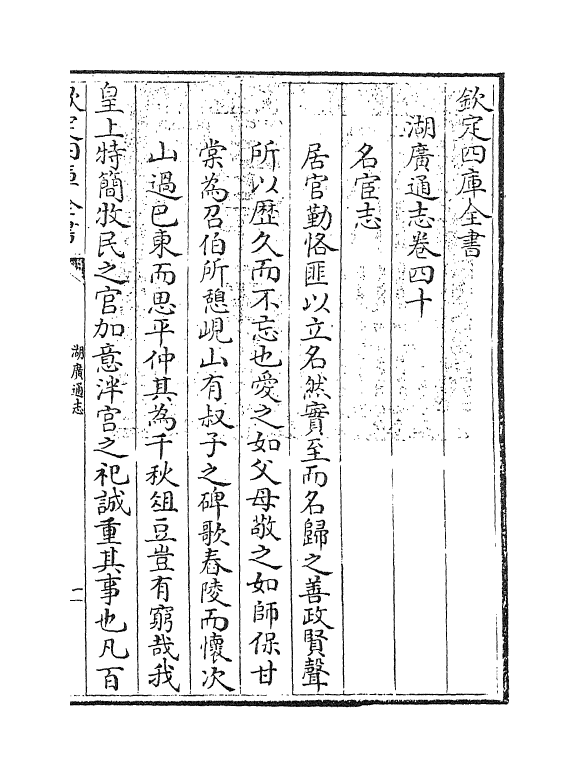 欽定四庫全書
湖廣通志卷四十
名宦志
居官勤恪匪以立名然實至而名歸之善政賢聲
所以歴久而不忘也愛之如父母敬之如師保甘
棠為召伯所憩峴山有叔子之碑歌舂陵而懷次
山過巴東而思平仲其為千秋俎豆豈有窮哉我
皇上特簡牧民之官加意泮宫之祀誠重其事也凡百
欽定四庫全書
湖廣通志